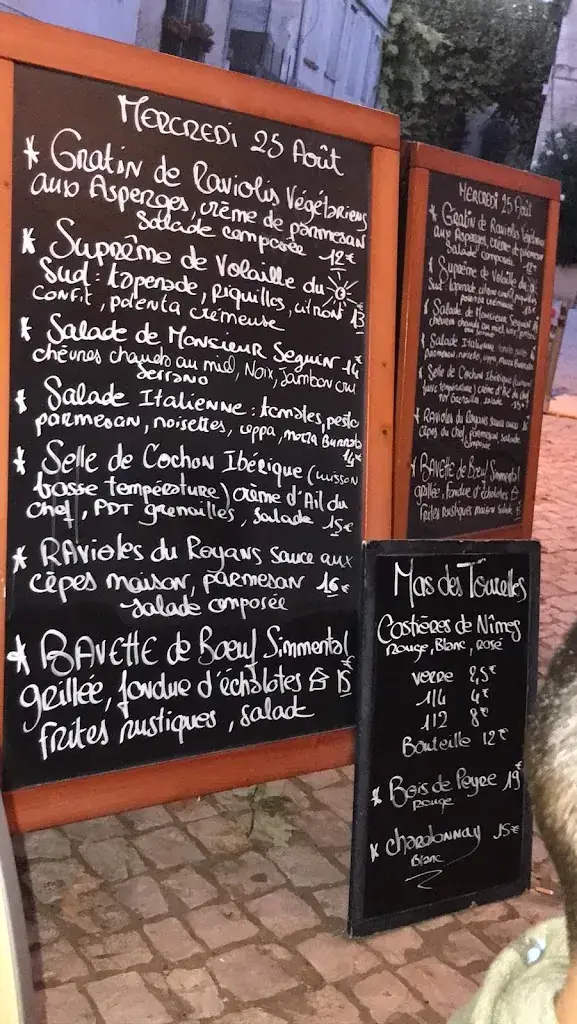 MERCREDI 25 Août
* Gratin de Raviolis Végétariens
aux Asperges, crème de parmesan
Salade composée 12€
* Suprême de Volaille du
Sud : tapenade, piquillos, citron 13
confit, polenta crémeuse
* Salade de Monsieur Seguin 14€
chèvres chauds au miel, Noix, Jambon cru
Serrano
* Salade Italienne : tomates, pesto
parmesan, noisettes, coppa, mozza Burrata
14€
* Selle de Cochon Ibérique (cuisson
basse température) crème d'Ail du
chef, PDT grenailles, salade 15€
* RAvioles du Royans sauce aux
cèpes maison, parmesan 16€
salade composée
* BAVETTE de Boeuf Simmental
grillée, fondue d'échalotes 15€
frites rustiques, salade
MERCREDI 25 Août
* Gratin de Raviolis Végétariens
aux Asperges, crème de parmesan
Salade composée 12€
* Suprême de Volaille du
Sud tapenade citron
confit polenta crémeuse
* Salade de Monsieur Seguin
chèvres chauds au miel
* Salade Italienne
parmesan, noisettes, coppa mozza Burrata
* Selle de Cochon Ibérique (cuisson
basse température) crème d'Ail du chef
salade 15€
* Ravioles du Royans sauce aux
cèpes du chef, parmesan, salade
composée
* BAVETTE de Boeuf Simmental
grillée, fondue d'échalotes
frites rustiques maison salade 15
Mas des Tourelles
Costières de Nîmes
Rouge, Blanc, rosé
verre 2,5€
1/4 4€
1/2 8€
Bouteille 12€
* Bois de Peyre 19€
rouge
* chardonnay 15€
Blanc